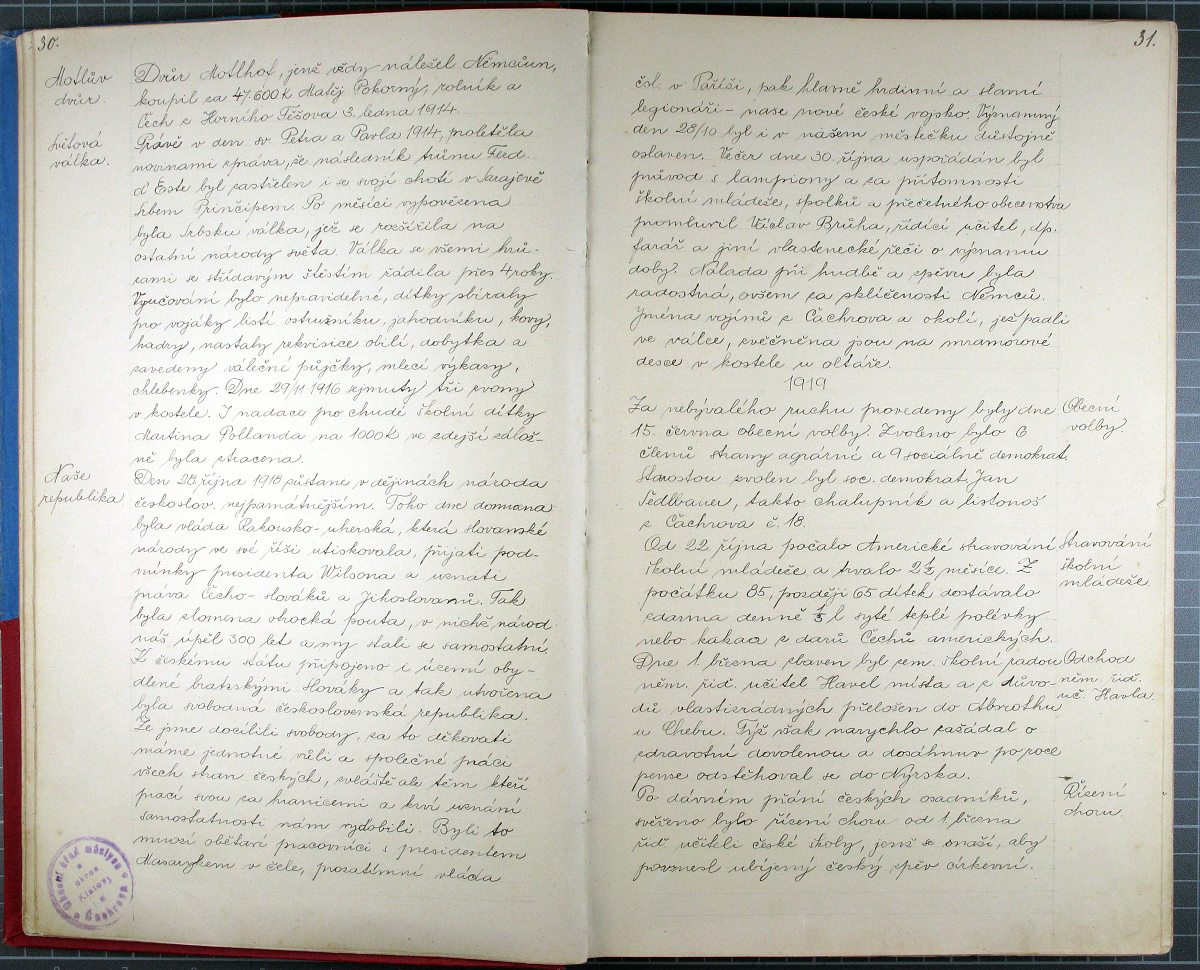 30.
Motlův
dvůr.
Dvůr Motlhof, jenž vždy náležel Němcům,
koupil za 47.600 K Matěj Pokorný, rolník a
Čech z Horního Těšova 3. ledna 1914.
Světová
válka.
Právě v den sv. Petra a Pavla 1914, proletěla
novinami zpráva, že následník trůnu Ferd.
d' Este byl zastřelen i se svojí chotí v Sarajevě
Srbem Principem. Po měsíci vypovězena
byla Srbsku válka, jež se rozšířila na
ostatní národy světa. Válka se všemi hrů-
zami se střídavým štěstím řádila přes 4 roky.
Vyučování bylo nepravidelné, dítky sbíraly
pro vojáky listí ostružníku, jahodníku, kovy,
hadry, nastaly rekvisice obilí, dobytka a
zavedeny váleční půjčky, mlecí výkazy,
chlebenky. Dne 29/11 1916 sejmuty tři zvony
v kostele. I nadace pro chudé školní dítky
Martina Pollanda na 1000 K ve zdejší zálož-
ně byla ztracena.
Naše
republika
Den 28. října 1918 zůstane v dějinách národa
českoslov. nejpamátnějším. Toho dne domiana
byla vláda Rakousko-uherská, která slovanské
národy ve své říši utiskovala, přijati pod-
mínky presidenta Wilsona a uznati
práva Čecho-slováků a Jihoslovanů. Tak
byla zlomena okocka pouta, v nichž národ
náš úpěl 300 let a my stali se samostatní.
K českému státu připojeno i území oby-
dlené bratrskými Slováky a tak utvořena
byla svobodná československá republika.
Že jsme docílili svobody, za to děkovati
máme jednotné vůli a společné práci
všech stran českých, zvláště ale těm kteří
prací svou za hranicemi a krví uznání
samostatnosti nám vydobili. Byli to
mnozí obětaví pracovníci s presidentem
Masarykem v čele, prozatímní vláda
Obecní úřad městyse
okres
Klatovy
v Čachrově
31.
čsl. v Paříži, pak hlavně hrdinní a slavní
legionáři - naše nové české vojsko. Významný
den 28/10 byl i v našem městečku důstojně
oslaven. Večer dne 30. října uspořádán byl
průvod s lampiony a za přítomnosti
školní mládeže, spolků a přečetného obecenstva
promluvil Václav Brůha, řídící učitel, dp.
farář a jiní vlastenecké řeči o významu
doby. Nálada při hudbě a zpěvu byla
radostná, ovšem za sklíčenosti Němců.
Jména vojínů z Čachrova a okolí, jež padli
ve válce, zvěčněna jsou na mramorové
desce v kostele u oltáře.
1919
Za nebývalého ruchu provedeny byly dne
Obecní
volby.
15. června obecní volby. Zvoleno bylo 6
členů strany agrární a 9 sociálně demokrat.
Starostou zvolen byl soc. demokrat Jan
Sedlbauer, takto chalupník a listonoš
z Čachrova č. 18.
Od 22. října počalo Americké stravování
Stravování
školní
mládeže
školní mládeže a trvalo 2 1/2 měsíce. Z
počátku 85, později 65 dítek dostávalo
zdarma denně 1/3 l syté teplé polévky
nebo kakaa z darů Čechů amerických.
Dne 1 března zbaven byl zem. školní radou
Odchod
něm. říd.
uč. Havla.
něm. říd. učitel Havel místa a z důvo-
dů vlastizrádných přeložen do Absrothu
u Chebu. Týž však narychlo zažádal o
zdravotní dovolenou a dosáhnuv po roce
pense odstěhoval se do Nýrska.
Po dávném přání českých osadníků,
Řízení
choru.
svěřeno bylo řízení choru od 1 března
říd. učiteli české školy, jenž se snaží, aby
povznesl ubíjený český zpěv církevní.